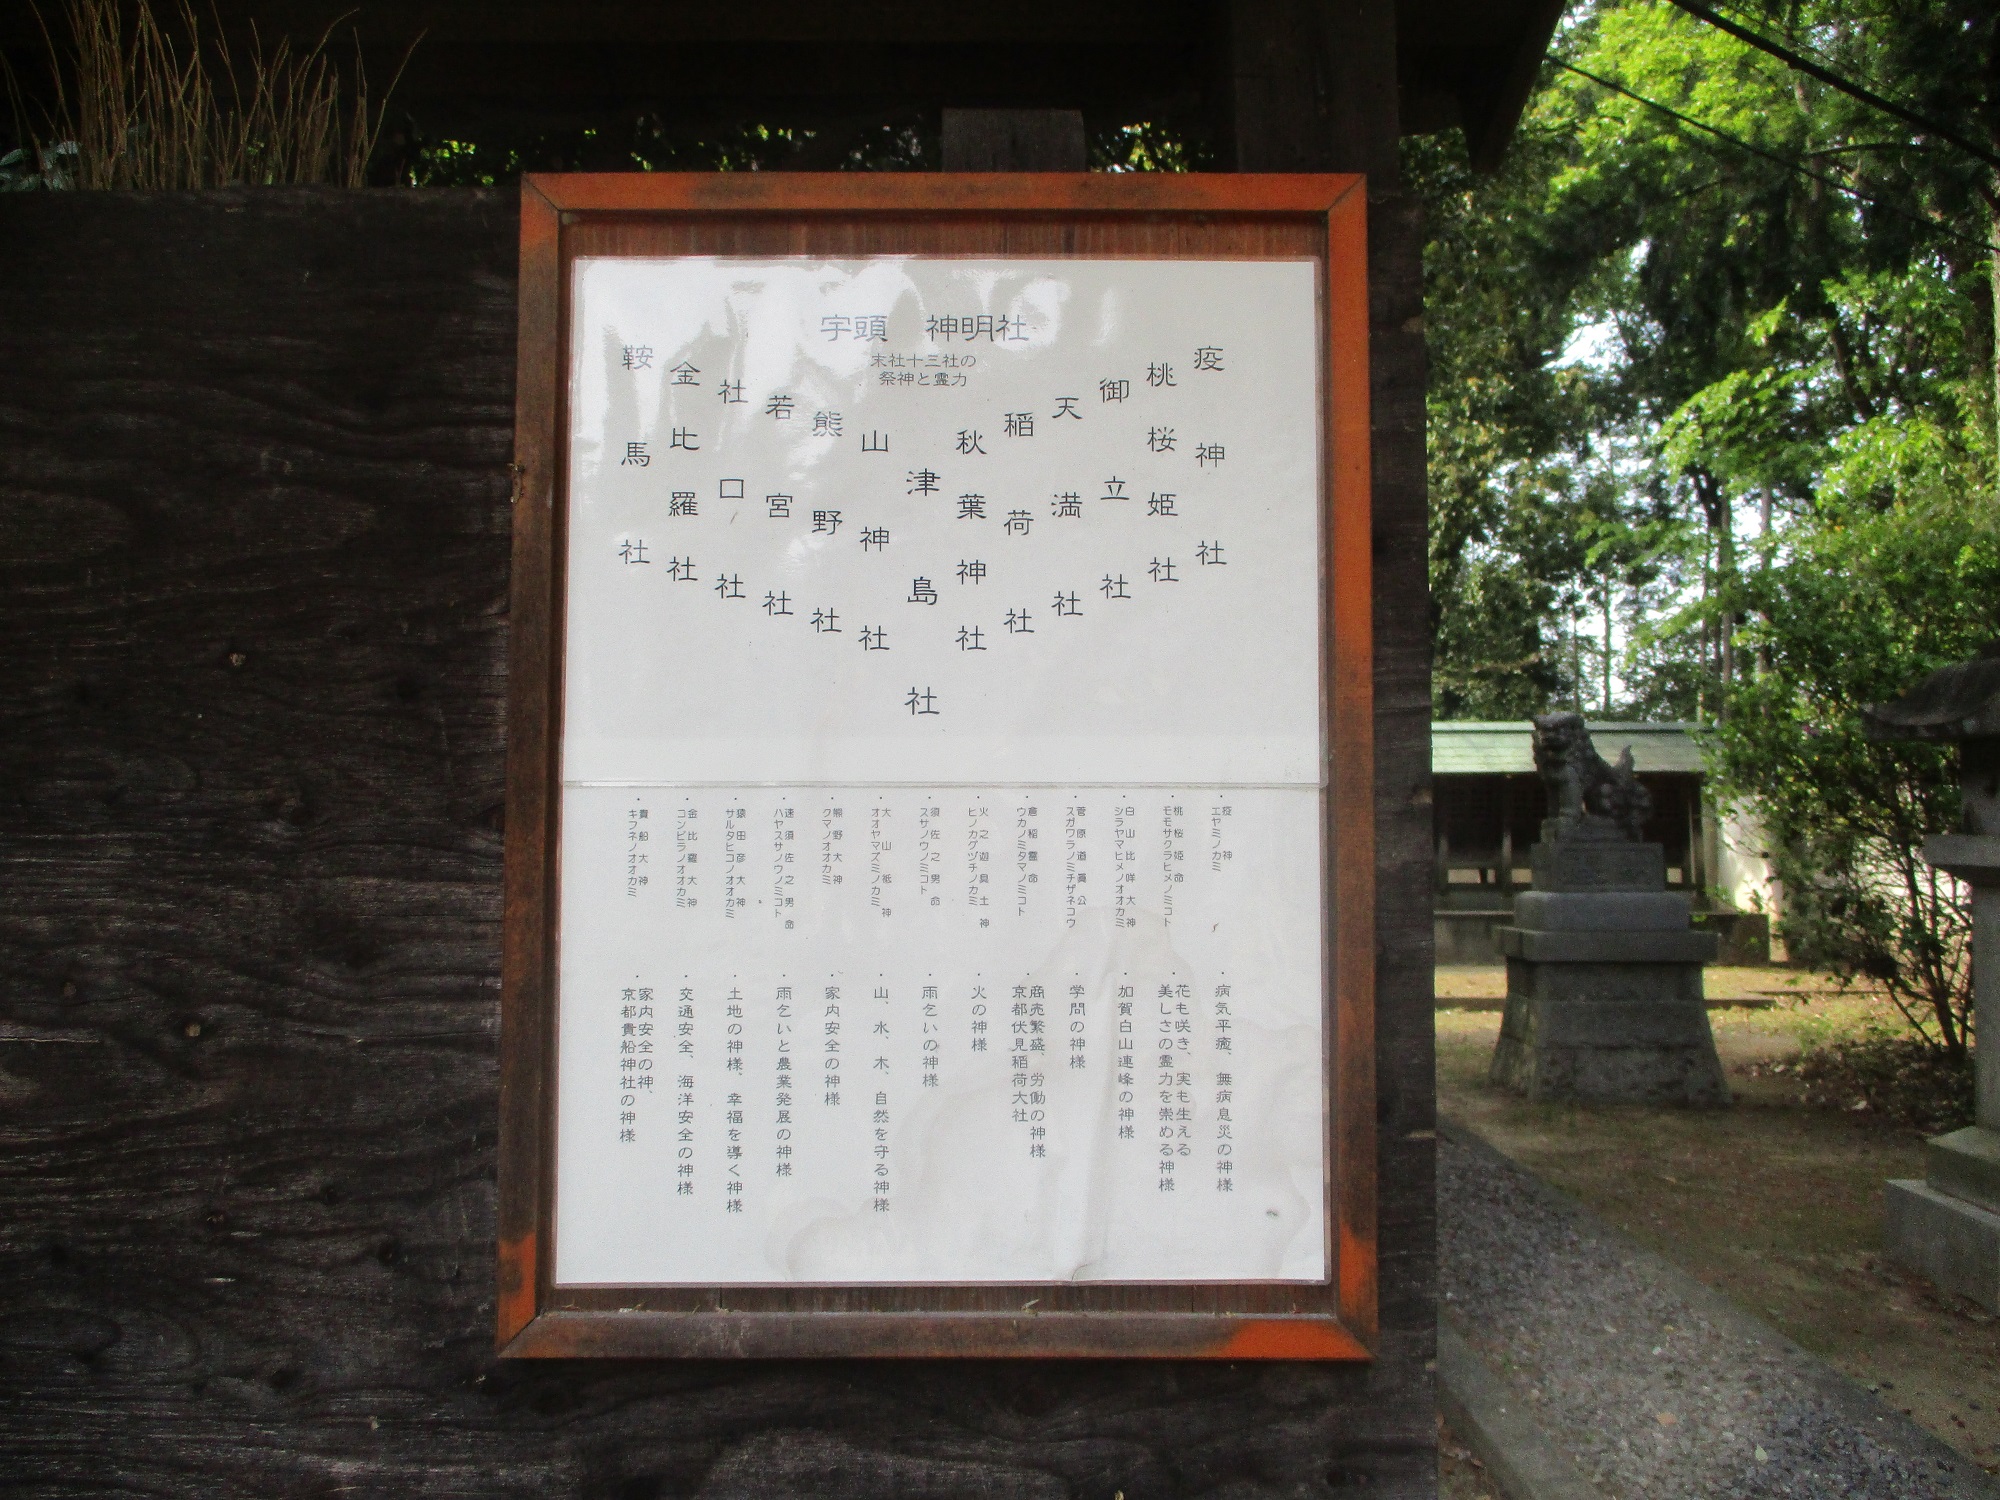 宇頭　神明社
末社十三社の
祭神と霊力
疫神社
桃桜姫社
御立社
天満社
稲荷社
秋葉神社
津島社
山神社
熊野社
若宮社
社口社
金比羅社
鞍馬社
・疫神
エヤミノカミ
・桃桜姫命
モモサクラヒメノミコト
・白山比咩大神
シラヤマヒメノオオカミ
・菅原道眞公
スガワラノミチザネコウ
・倉稲霊命
ウカノミタマノミコト
・火之迦具土神
ヒノカグヅチノカミ
・須佐之男命
スサノウノミコト
・大山祗神
オオヤマズミノカミ
・熊野大神
クマノオオカミ
・速須佐之男命
ハヤスサノウノミコト
・猿田彦大神
サルタヒコノオオカミ
・金比羅大神
コンピラノオオカミ
・貴船大神
キフネノオオカミ
・病気平癒、無病息災の神様
・花も咲き、実も生える
美しさの霊力を崇める神様
・加賀白山連峰の神様
・学問の神様
・商売繁盛、労働の神様
京都伏見稲荷大社
・火の神様
・雨乞いの神様
・山、水、木、自然を守る神様
・家内安全の神様
・雨乞いと農業発展の神様
・土地の神様、幸福を導く神様
・交通安全、海洋安全の神様
・家内安全の神、
京都貴船神社の神様